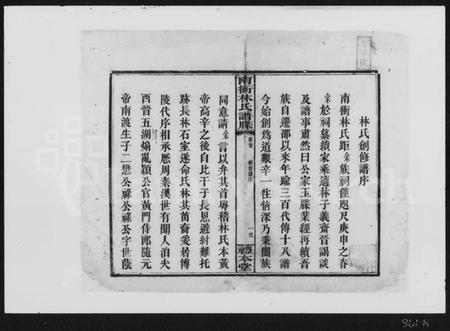 林氏創修譜序
南衡林氏距余族祠僅咫尺庚申之春
余於祠纂續家乘適林子義齋晉謁談
及譜事肅然曰公家玉牒業經再續吾
族自遷邵以來年踰三百代傳十八譜
今始創為道艱辛一往情深乃秉闔族
南衡林氏譜牒
卷首
一
禮本堂
同意請余言以弁其首粵稽林氏本黃
帝高辛之後自比干子長恩避紂難托
跡長林石室遂命氏林其苗裔爰居博
陵代序相承歷周秦漢世有聞人洎夫
西晉五湖煽亂穎公官黃門侍郎隨元
帝南渡生子二懋公祿公祿公字世蔭